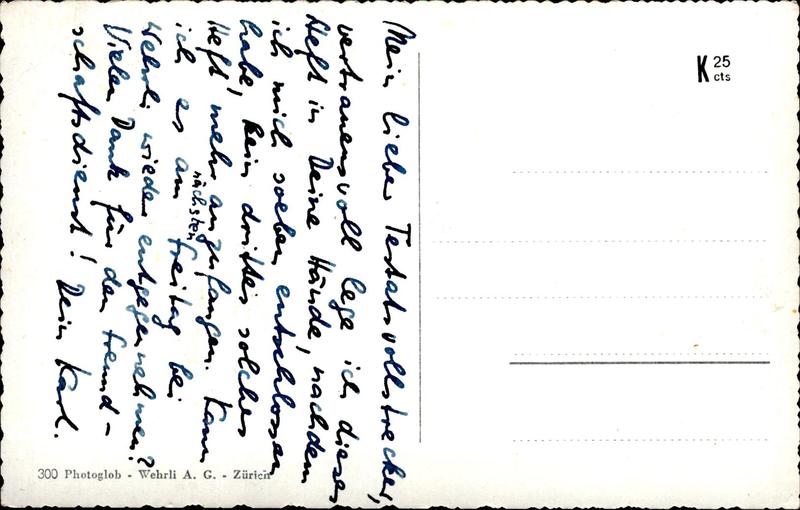 Mein lieber Testatsvollstrecker,
vertrauensvoll lege ich dieses
Heft in Deine Hände, nachdem
ich mich soeben entschlossen
habe, kein drittes solches
Heft mehr anzufangen. Kann
ich es am nächsten Freitag bei
Wehrli wieder entgegennehmen?
Vielen Dank für den Freund-
schaftsdienst! Dein Karl.
K 25
cts
300 Photoglob - Wehrli A. G. - Zürich